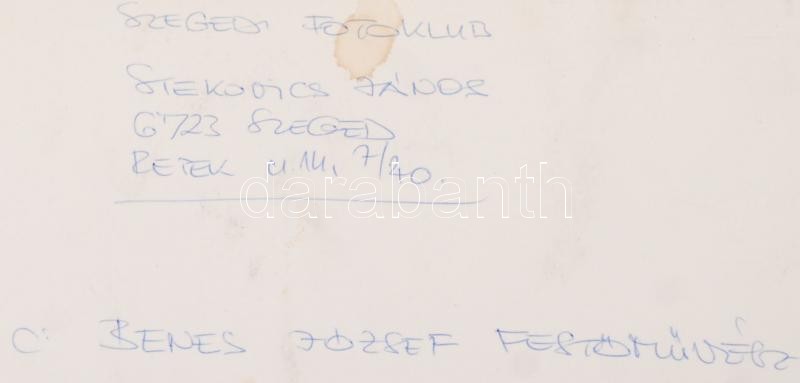 SZEGEDI FOTOKLUB
STEKOVICS JÁNOS
6723 SZEGED
RETEK u. 14. 7/40.
darabanth
C: BENES JÓZSEF FESTŐMŰVÉSZ